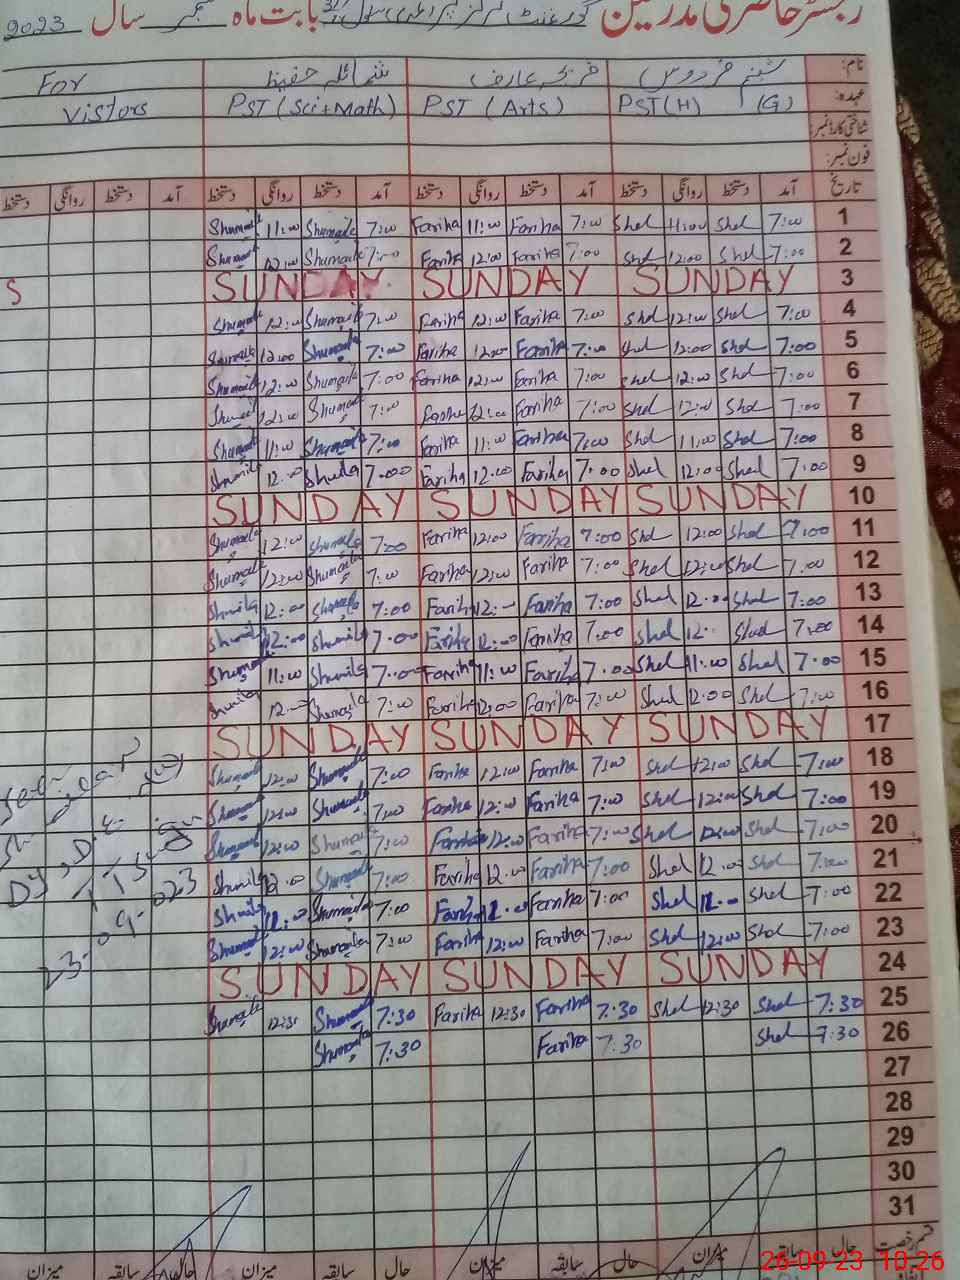 رجسٹر حاضری مدرسین گورنمنٹ گرلز پرائمری سکول بابت ماہ ستمبر سال 2023
نام: شبنم فردوس فریحہ عارف شمائلہ حفیظ For
عہدہ: PST(H) (G) PST (Arts) PST (Sci+Math) Vistors
شناختی کارڈ نمبر:
فون نمبر:
تاریخ آمد دستخط روانگی دستخط آمد دستخط روانگی دستخط آمد دستخط روانگی دستخط آمد دستخط روانگی دستخط
Shumaila 11:00 Shumaila 7:00 Fariha 11:00 Fariha 7:00 Shel 11:00 Shel 7:00 1
Shumaila 12:00 Shumaila 7:00 Fariha 12:00 Fariha 7:00 Shel 12:00 Shel 7:00 2
S SUNDAY SUNDAY SUNDAY 3
Shumaila 12:00 Shumaila 7:00 Fariha 12:00 Fariha 7:00 Shel 12:00 Shel 7:00 4
Shumaila 12:00 Shumaila 7:00 Fariha 12:00 Fariha 7:00 Shel 12:00 Shel 7:00 5
Shumaila 12:00 Shumaila 7:00 Fariha 12:00 Fariha 7:00 Shel 12:00 Shel 7:00 6
Shumaila 12:00 Shumaila 7:00 Fariha 12:00 Fariha 7:00 Shel 12:00 Shel 7:00 7
Shumaila 11:00 Shumaila 7:00 Fariha 11:00 Fariha 7:00 Shel 11:00 Shel 7:00 8
Shumaila 12:00 Shumaila 7:00 Fariha 12:00 Fariha 7:00 Shel 12:00 Shel 7:00 9
SUNDAY SUNDAY SUNDAY 10
Shumaila 12:00 Shumaila 7:00 Fariha 12:00 Fariha 7:00 Shel 12:00 Shel 7:00 11
Shumaila 12:00 Shumaila 7:00 Fariha 12:00 Fariha 7:00 Shel 12:00 Shel 7:00 12
Shumila 12:00 Shumaila 7:00 Fariha 12:00 Fariha 7:00 Shel 12:00 Shel 7:00 13
Shumila 12:00 Shumila 7:00 Fariha 12:00 Fariha 7:00 Shel 12: Shel 7:00 14
Shumaila 11:00 Shumila 7:00 Fariha 11:00 Fariha 7:00 Shel 11:00 Shel 7:00 15
Shumila 12:00 Shumaila 7:00 Fariha 12:00 Fariha 7:00 Shel 12:00 Shel 7:00 16
SUNDAY SUNDAY SUNDAY 17
Shumaila 12:00 Shumaila 7:00 Fariha 12:00 Fariha 7:00 Shel 12:00 Shel 7:00 18
Shumaila 12:00 Shumaila 7:00 Fariha 12:00 Fariha 7:00 Shel 12:00 Shel 7:00 19
Shumaila 12:00 Shumaila 7:00 Fariha 12:00 Fariha 7:00 Shel 12:00 Shel 7:00 20
Shumila 12:00 Shumaila 7:00 Fariha 12:00 Fariha 7:00 Shel 12:00 Shel 7:00 21
Shumila Shumaila 7:00 Fariha Fariha 7:00 Shel Shel 7:00 22
23-09-2023 Shumaila 12:00 Shumaila 7:00 Fariha 12:00 Fariha 7:00 Shel 12:00 Shel 7:00 23
SUNDAY SUNDAY SUNDAY 24
Shumaila 12:30 Shumaila 7:30 Fariha 12:30 Fariha 7:30 Shel 12:30 Shel 7:30 25
Shumaila 7:30 Fariha 7:30 Shel 7:30 26
27
28
29
30
31
قسم رخصت حال سابقہ میزان حال سابقہ میزان حال سابقہ میزان حال سابقہ میزان
26-09-23 10:26